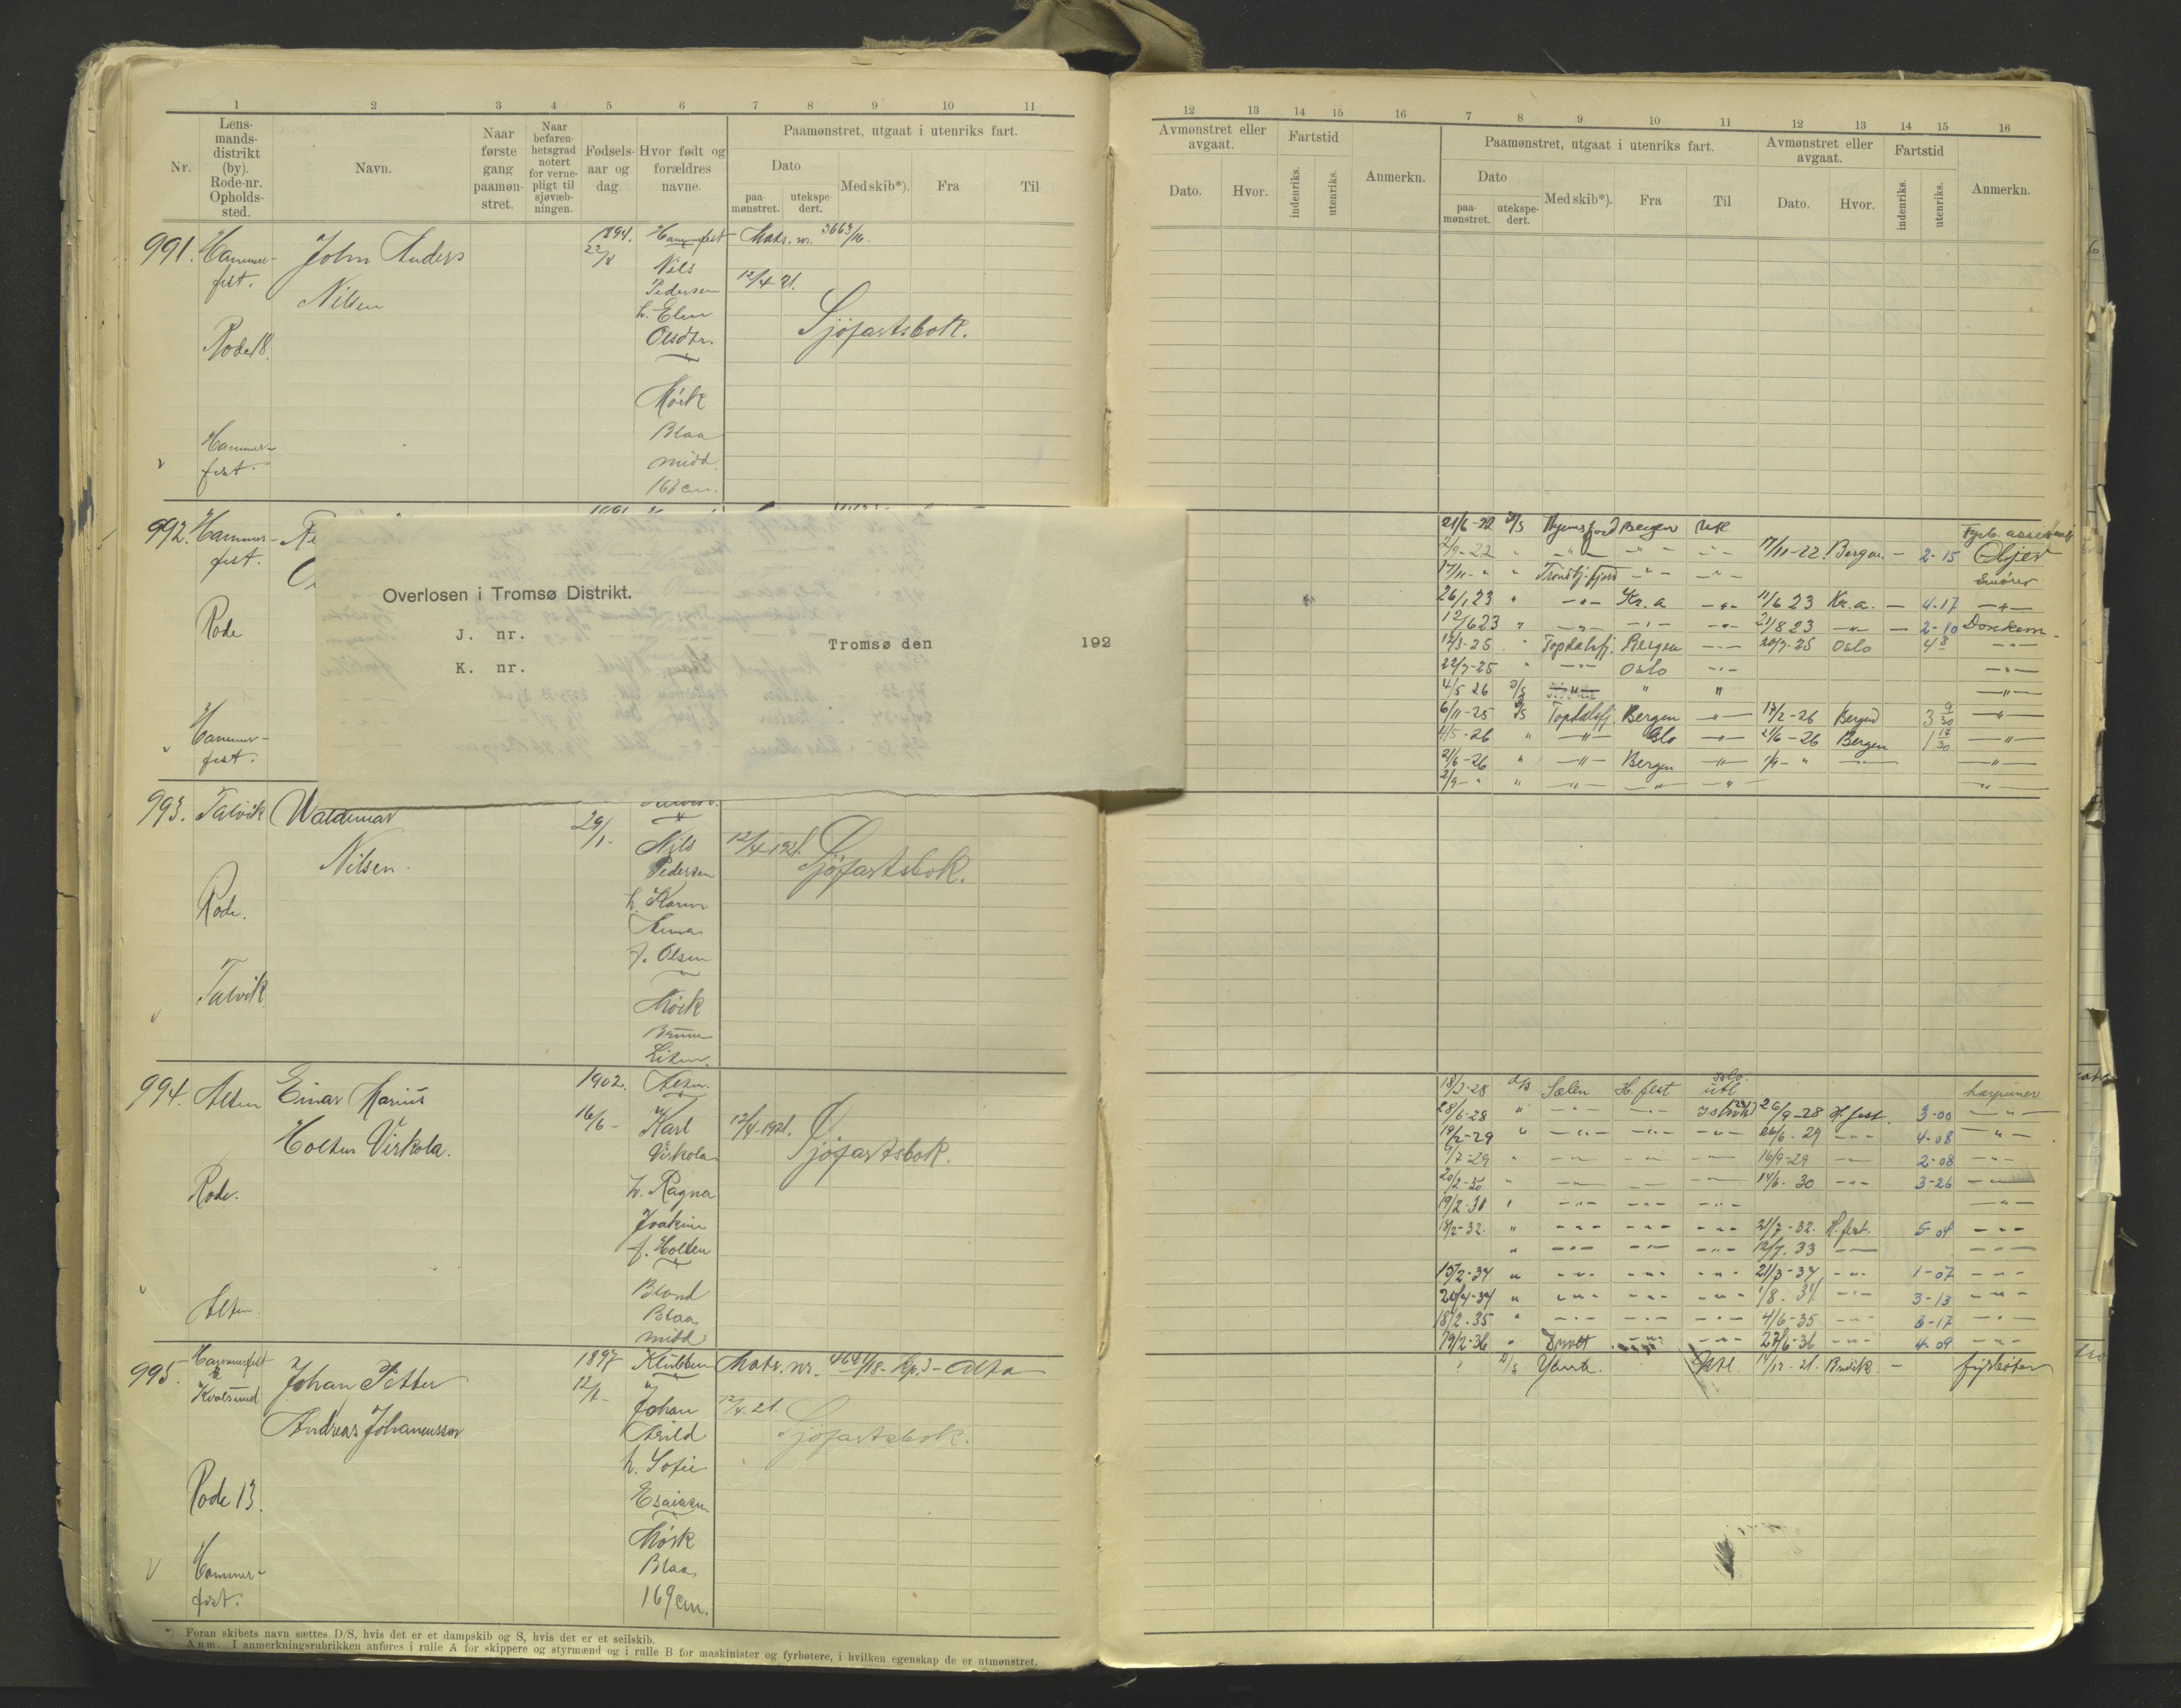 1 2 3 4 5 6 7 8 9 10 11
Nr.
Lens-
mands-
distrikt
(by).
Rode-nr.
Opholds-
sted.
Navn.
Naar
første
gang
paamøn-
stret.
Naar
befaren-
hetsgrad
notert
for verne-
pligt til
sjøvæb-
ningen.
Fødsels-
aar og
dag.
Hvor født og
forældres
navne.
Paamønstret, utgaat i utenriks fart.
Dato
paa-
mønstret.
utekspe-
dert.
Med skib*).
Fra
Til
991.
Hammer-
fest.
Rode 18.
Hammer-
fest.
John Anders
Nilsen
1894.
22/8
Hammerfest
Nils
Pedersen
h. Elen
Olsdtr.
Mörk
Blaa
midd.
167 cm.
Matr. nr. 3663/16.
12/4 21.
Sjöfartsbok.
992.
Hammer-
fest.
Rode
Hammer-
fest.
Overlosen i Tromsø Distrikt.
J. nr.
K. nr.
Tromsø den 192
993.
Talvik
Rode.
Talvik
Waldemar
Nilsen.
29/1-
Nils
Pedersen
h. Karen
Anna
f. Olsen
Mörk
Brune
Liten.
12/4-1921.
Sjöfartsbok.
994.
Alten
Rode.
Alten.
Einar Marius
Holten Virkola.
1902.
16/6-
Alten.
Karl
Virkola
h. Ragna
Joakine
f. Holten
Blond
Blaa
midd.
12/4-1921.
Sjöfartsbok.
995.
Hammerfest
Kvalsund
Rode 13.
Hammer-
fest.
Johan Petter
Andreas Johannessen
1897
12/1-
Klubben
Johan
Arild
h. Sofie
Esaiasen
Mörk
Blaa
169 cm.
Matr. nr. 4041/18- Kp. 3- Alta
12/4. 21.
Sjöfartsbok.
*) Foran skibets navn sættes D/S, hvis det er et dampskib og S, hvis det er et seilskib.
Anm. I anmerkningsrubrikken anføres i rulle A for skippere og styrmænd og i rulle B for maskinister og fyrbøtere, i hvilken egenskap de er utmønstret.
12 13 14 15 16 7 8 9 10 11 12 13 14 15 16
Avmønstret eller
avgaat.
Dato.
Hvor.
Fartstid
indenriks.
utenriks.
Anmerkn.
Paamønstret, utgaat i utenriks fart.
Dato
paa-
mønstret.
utekspe-
dert.
Med skib*).
Fra
Til
Avmønstret eller
avgaat.
Dato.
Hvor.
Fartstid
indenriks.
utenriks.
Anmerkn.
21/6-22 D/S Bergen utl
2/9-22 " -"- -"- -"- 17/11-22. Bergen. - 2-15 Oljer
17/11-" " Trondhj.fjord -"- -"- Smörer
26/1 23 " -"- Kr.a -"- 11/6 23 Kr.a. - 4-17 -"-
12/6 23 " -"- -"- -"- 21/8 23 -"- - 2-10 Donkem.
12/3-25 " Topdalsfj. Bergen -"- 20/7-25 Oslo 4 8 -"-
22/7-25 " -"- Oslo -"- -"-
4/5 26 D/S " " -"-
6/11-25 D/S Topdalsfj. Bergen -"- 13/2-26 Bergen 3 9/30 -"-
4/5-26 " -"- Oslo -"- 21/6-26 Bergen 1 17/30 -"-
21/6-26 " -"- Bergen -"- 1/9-" -"- -"-
2/9-" " -"- -"- -"- -"-
18/2-28 D/S Sælen H.fest utl harpuner
28/6-28 " -"- -"- 26/9-28 H.fest. 3-00 -"-
19/2-29 " -"- -"- -"- 26/6-29 -"- 4-08 -"-
9/7-29 " -"- -"- -"- 16/9-29 -"- 2-08 -"-
20/2-30 " -"- -"- -"- 14/6-30 -"- 3-26 -"-
19/2-31 " -"- -"- -"- -"-
18/2-32. " -"- -"- -"- 21/7-32. H.fest. 5-04 -"-
" -"- -"- -"- 12/7. 33 -"- -"-
15/2-34 " -"- -"- -"- 21/3-34 -"- 1-07 -"-
20/4-34 " -"- -"- -"- 1/8. 34 -"- 3-13 -"-
18/2. 35 " -"- -"- -"- 4/6-35 -"- 3-17 -"-
19/2-36 " -"- -"- 27/6-36 -"- 4-09 -"-
D/S Utl. fyrböter